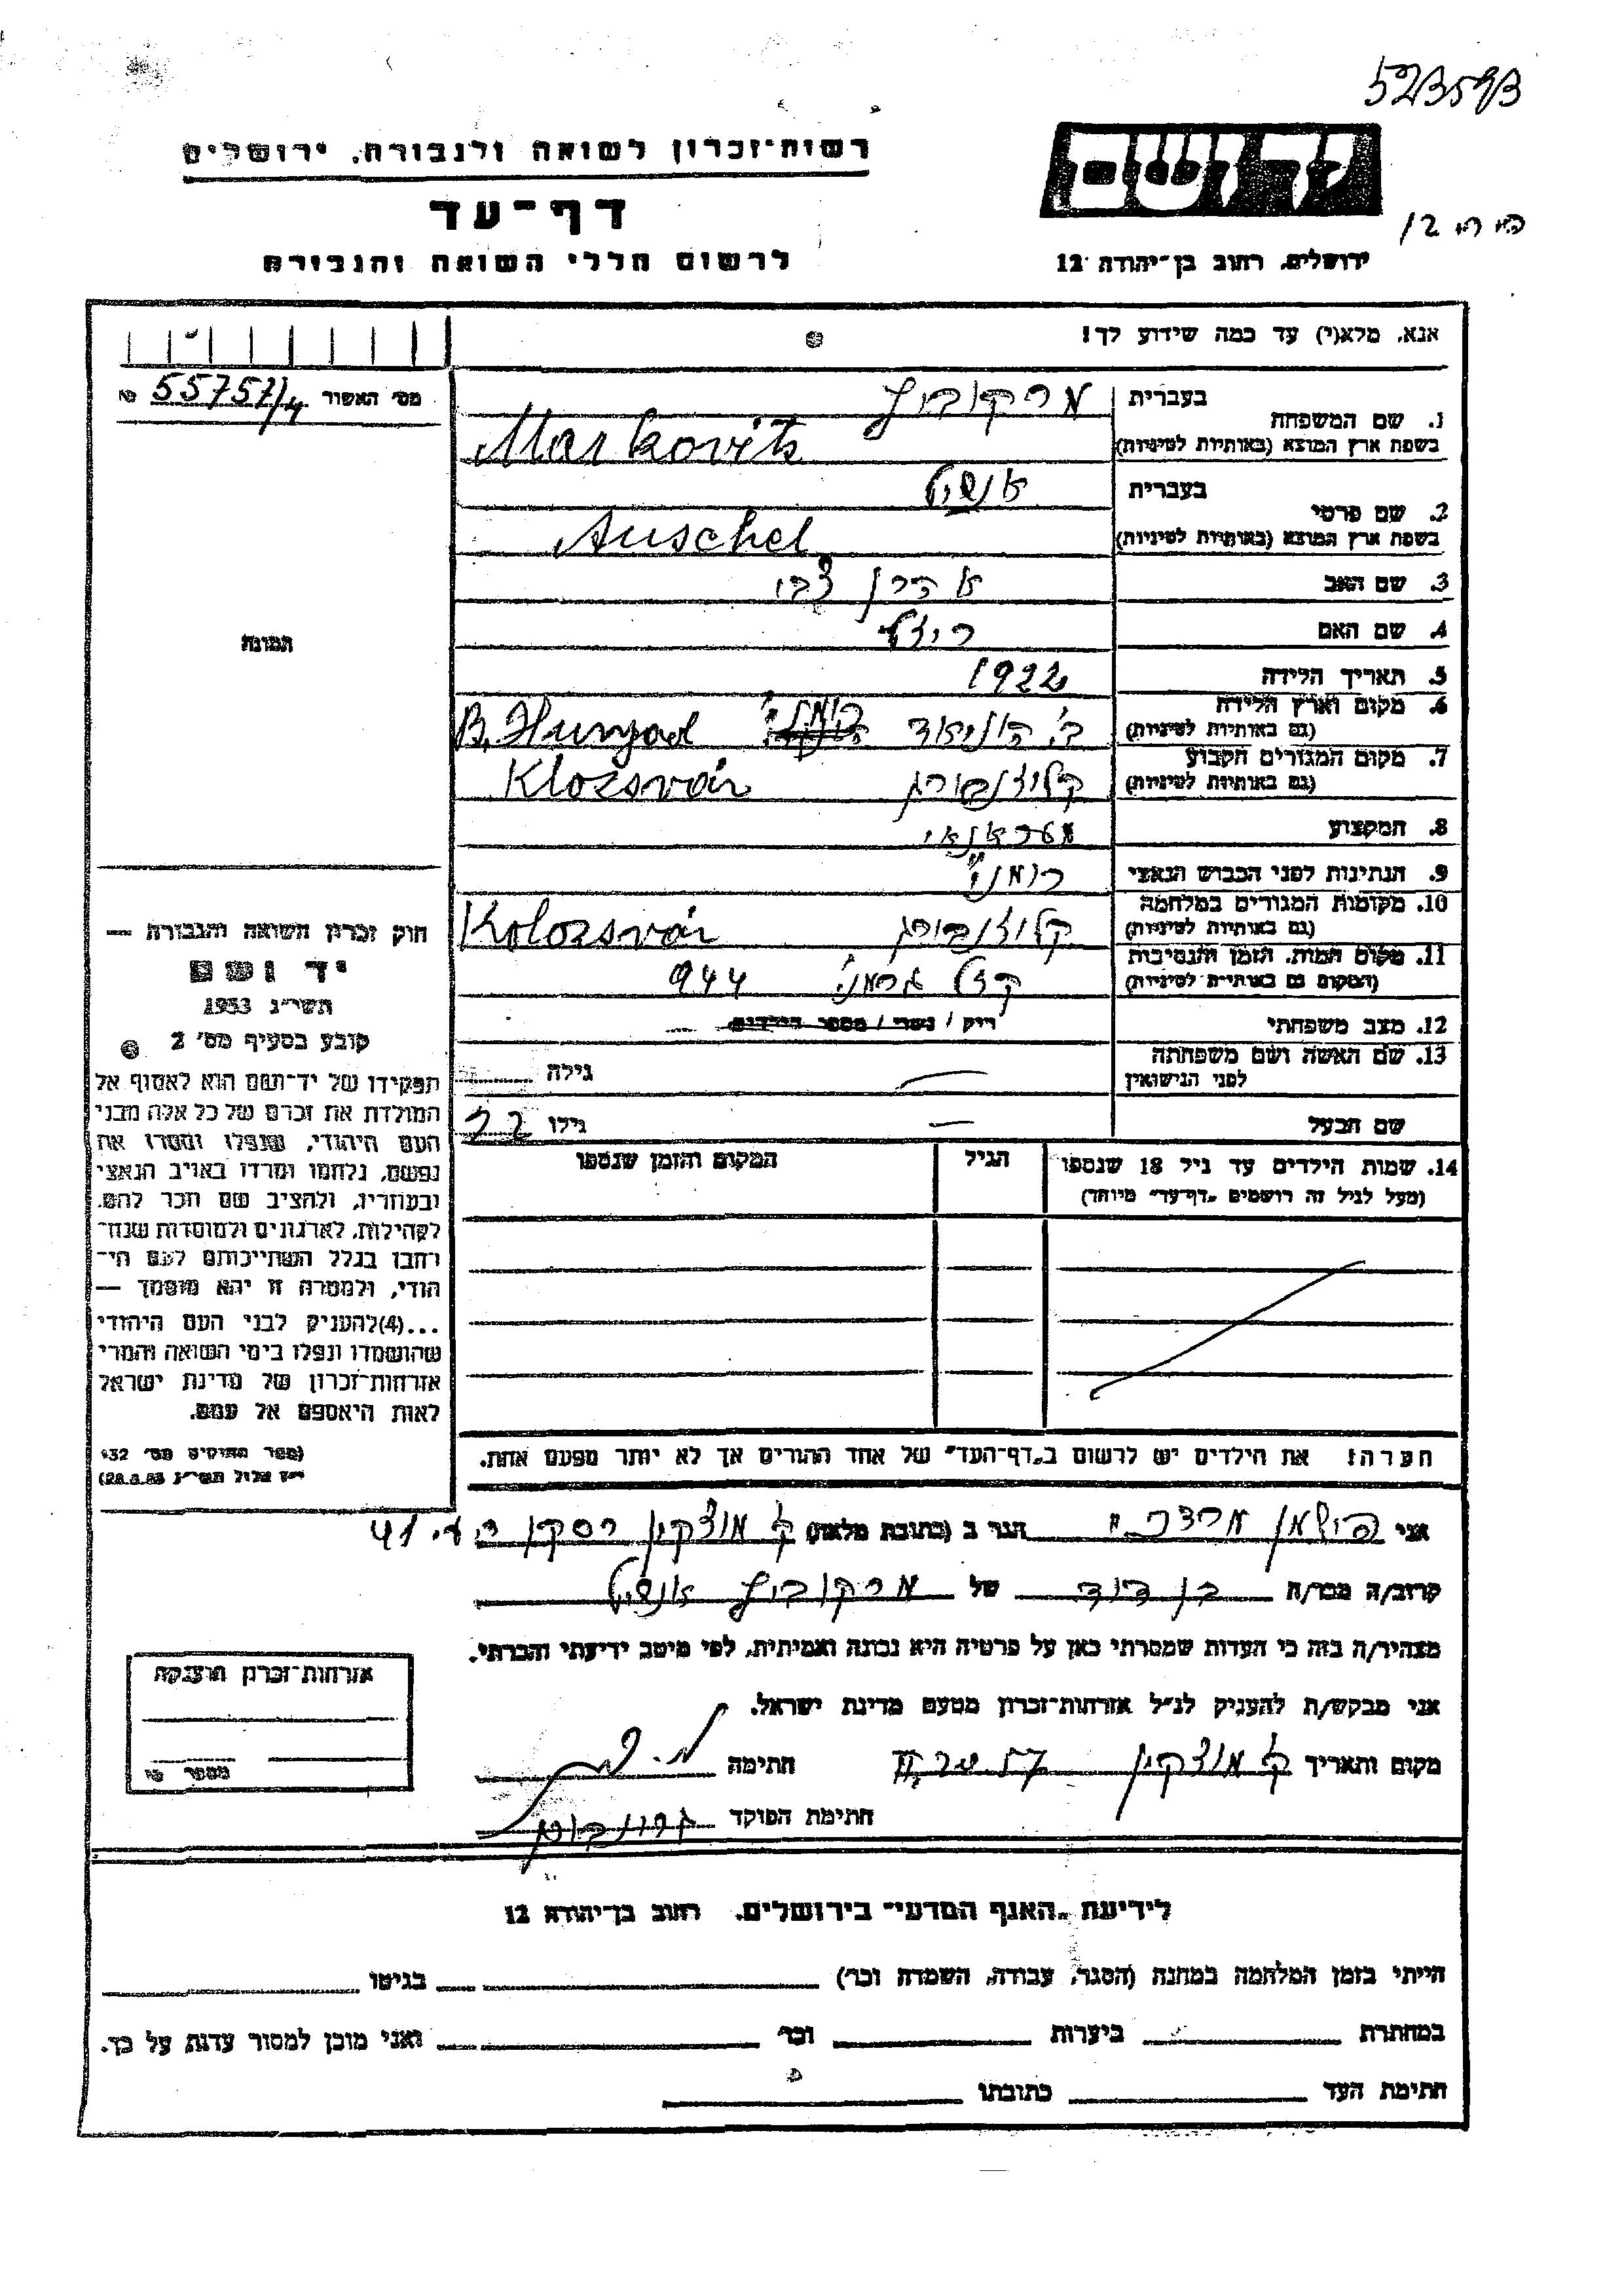 523593
רשות־זכרון לשואה ולגבורה, ירושלים
יד ושם
דף־עד
לרשום חללי השואה והגבורה
ירושלים, רחוב בן־יהודה 12
אנא, מלא(י) עד כמה שידוע לך!
מס׳ האשור 55757/4
1. שם המשפחה
בעברית מרקוביץ
בשפת ארץ המוצא (באותיות לטיניות) Markovits
2. שם פרטי
בעברית אנשיל
בשפת ארץ המוצא (באותיות לטיניות) Anschel
3. שם האב אהרן צבי
4. שם האם רייזל
5. תאריך הלידה 1922
6. מקום וארץ הלידה (גם באותיות לטיניות) ב. הוניאד B. Hunyad
7. מקום המגורים הקבוע (גם באותיות לטיניות) קלויזנבורג Klozsvár
8. המקצוע
9. הנתינות לפני הכבוש הנאצי
10. מקומות המגורים במלחמה (גם באותיות לטיניות) קלויזנבורג Kolozsvár
11. מקום המות, הזמן והנסיבות (המקום גם באותיות לטיניות) 944
12. מצב משפחתי רוק / נשוי / מספר הילדים
13. שם האשה ושם משפחתה לפני הנישואין — גילה
שם הבעל — גילו 22
14. שמות הילדים עד גיל 18 שנספו
(מעל לגיל זה רושמים „דף־עד״ מיוחד)
הגיל
המקום והזמן שנספו
תמונה
חוק זכרון השואה והגבורה —
יד ושם
תשי״ג 1953
קובע בסעיף מס׳ 2
תפקידו של יד־ושם הוא לאסוף אל
המולדת את זכרם של כל אלה מבני
העם היהודי, שנפלו ומסרו את
נפשם, נלחמו ומרדו באויב הנאצי
ובעוזריו, ולהציב שם וזכר להם,
לקהילות, לארגונים ולמוסדות שנח־
רבו בגלל השתייכותם לעם הי־
הודי, ולמטרה זו יהא מוסמך —
...(4) להעניק לבני העם היהודי
שהושמדו ונפלו בימי השואה והמרי
אזרחות־זכרון של מדינת ישראל
לאות היאספם אל עמם.
(ספר החוקים מס׳ 132
י״ז אלול תשי״ג 28.8.53)
הערה: את הילדים יש לרשום ב„דף־העד״ של אחד ההורים אך לא יותר מפעם אחת.
אני מרדכי הגר ב (כתובת מלאה) ק. מוצקין 41
קרוב/ה מכר/ה בן דוד של מרקוביץ אנשיל
מצהיר/ה בזה כי העדות שמסרתי כאן על פרטיה היא נכונה ואמיתית, לפי מיטב ידיעתי והכרתי.
אני מבקש/ת להעניק לנ״ל אזרחות־זכרון מטעם מדינת ישראל.
מקום ותאריך ק. מוצקין חתימה
חתימת הפוקד
אזרחות־זכרון הוענקה
מספר
לידיעת „האגף המדעי״ בירושלים, רחוב בן־יהודה 12
הייתי בזמן המלחמה במחנה (הסגר, עבודה, השמדה וכו׳) בגיטו
במחתרת ביערות וכו׳ ואני מוכן למסור עדות על כך.
חתימת העד כתובתו